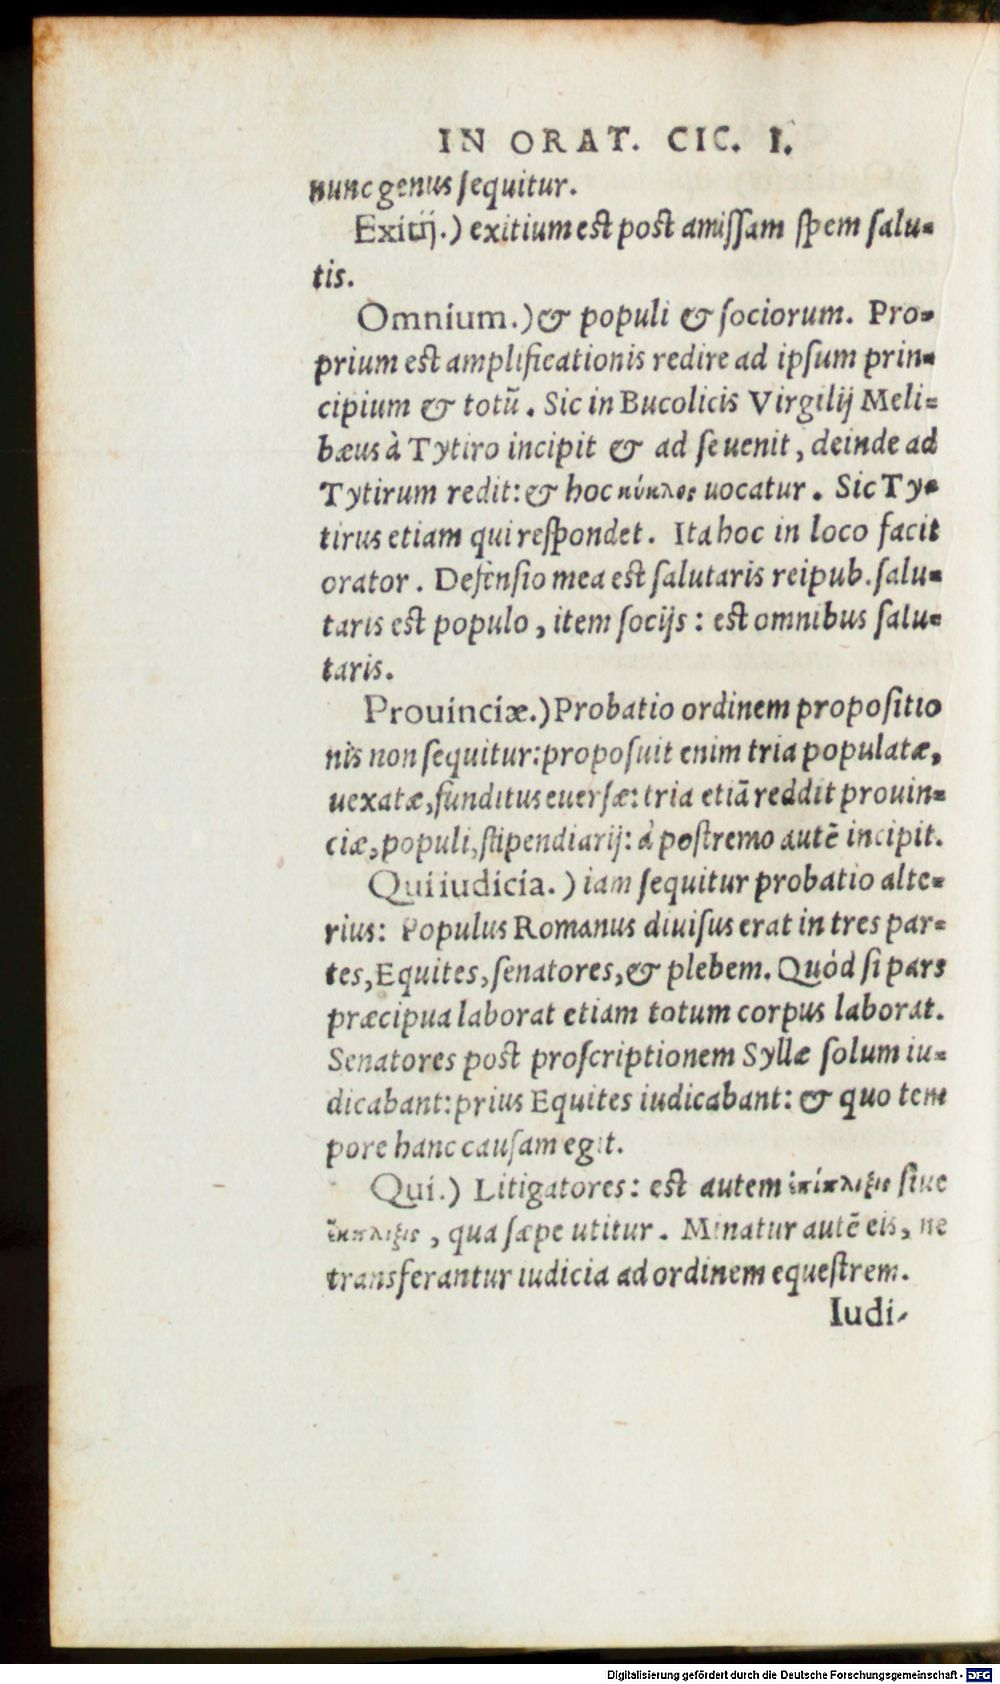 IN ORAT. CIC. I.
nunc genus ſequitur.
Exitij.) exitium eſt post amiſſam ſpem ſalu=
tis.
Omnium.) & populi & ſociorum. Pro=
prium eſt amplificationis redire ad ipſum prin=
cipium & totũ. Sic in Bucolicis Virgilij Meli=
bæus à Tytiro incipit & ad ſe uenit, deinde ad
Tytirum redit: & hoc κύκλος uocatur. Sic Ty=
tirus etiam qui reſpondet. Ita hoc in loco facit
orator. Defenſio mea eſt ſalutaris reipub. ſalu=
taris eſt populo, item ſocijs: eſt omnibus ſalu=
taris.
Prouinciæ.) Probatio ordinem propoſitio
nis non ſequitur: propoſuit enim tria populatæ,
uexatæ, funditus euerſæ: tria etiã reddit prouin=
ciæ, populi, ſtipendiarij: à poſtremo autẽ incipit.
Qui iudicia.) iam ſequitur probatio alte=
rius: Populus Romanus diuiſus erat in tres par=
tes, Equites, ſenatores, & plebem. Quòd ſi pars
præcipua laborat etiam totum corpus laborat.
Senatores poſt proſcriptionem Syllæ ſolum iu=
dicabant: prius Equites iudicabant: & quo tem
pore hanc cauſam egit.
Qui.) Litigatores: eſt autem ſiue
, qua ſæpe utitur. Minatur autẽ eis, ne
transferantur iudicia ad ordinem equeſtrem.
Iudi-
Digitalisierung gefördert durch die Deutsche Forschungsgemeinschaft - DFG